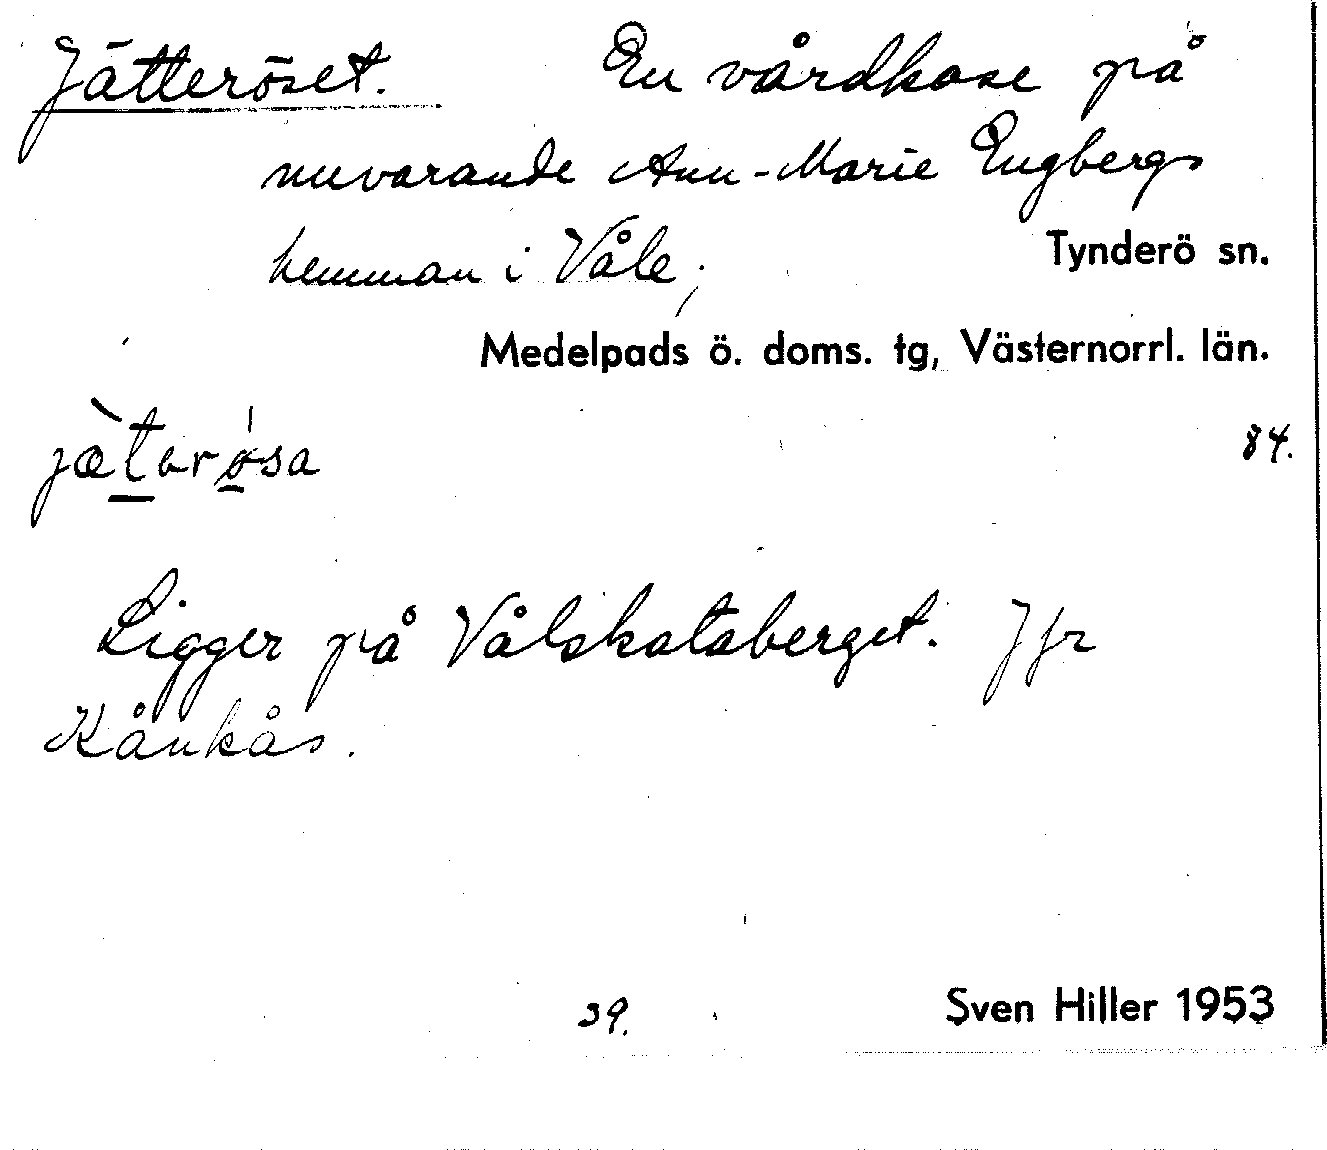 Jätteröset. En vårdkase på
nuvarande Ann-Marie Engbergs
hemman i Våle,
Tynderö sn.
Medelpads ö. doms. tg, Västernorrl. län.
84.
Ligger på Vålskataberget. Jfr
Kånkås.
39.
Sven Hiller 1953